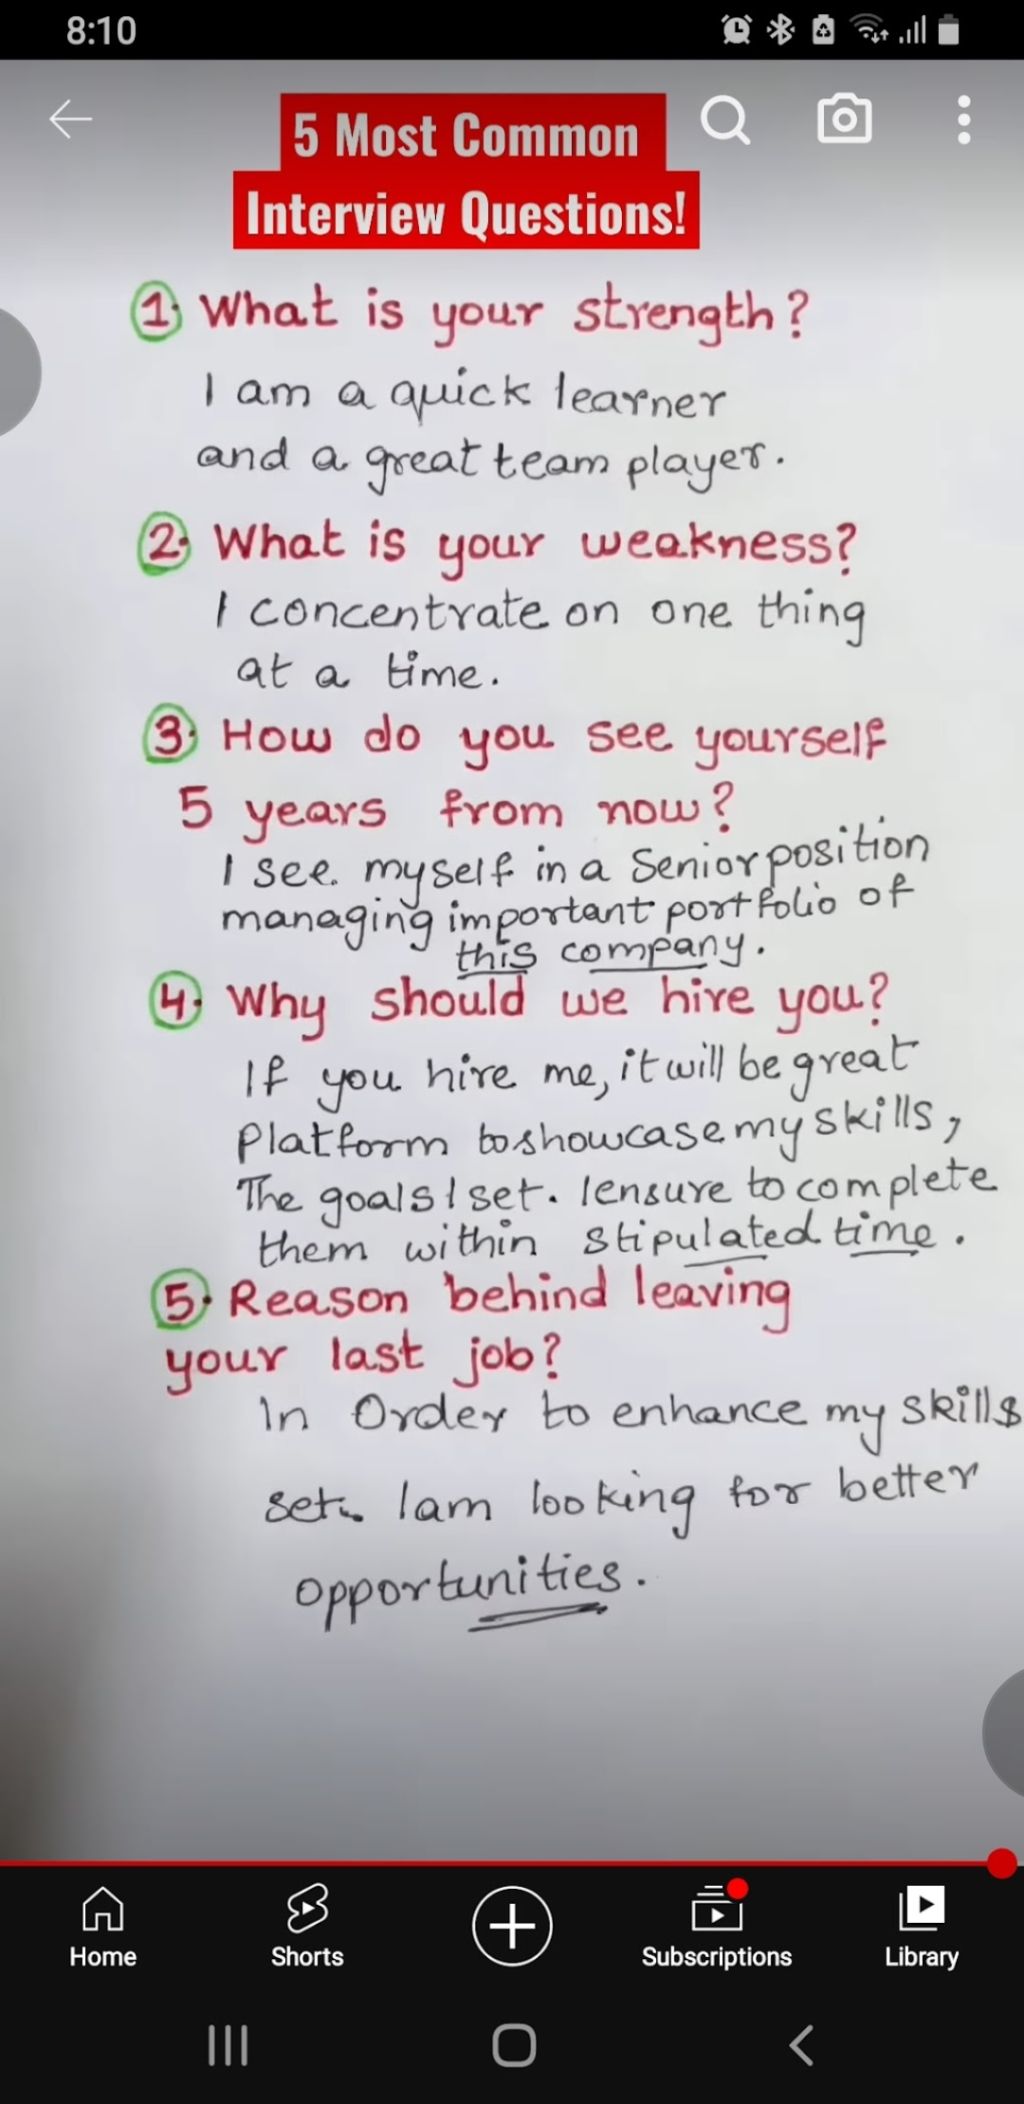 8:10
5 Most Common
Interview Questions!
1. What is your strength?
I am a quick learner
and a great team player.
2. What is your weakness?
I concentrate on one thing
at a time.
3. How do you see yourself
5 years from now?
I see myself in a Senior position
managing important portfolio of
this company.
4. Why should we hire you?
If you hire me, it will be great
Platform to showcase my skills,
The goals I set. I ensure to complete
them within stipulated time.
5. Reason behind leaving
your last job?
In Order to enhance my skills
set. I am looking for better
opportunities.
Home
Shorts
Subscriptions
Library